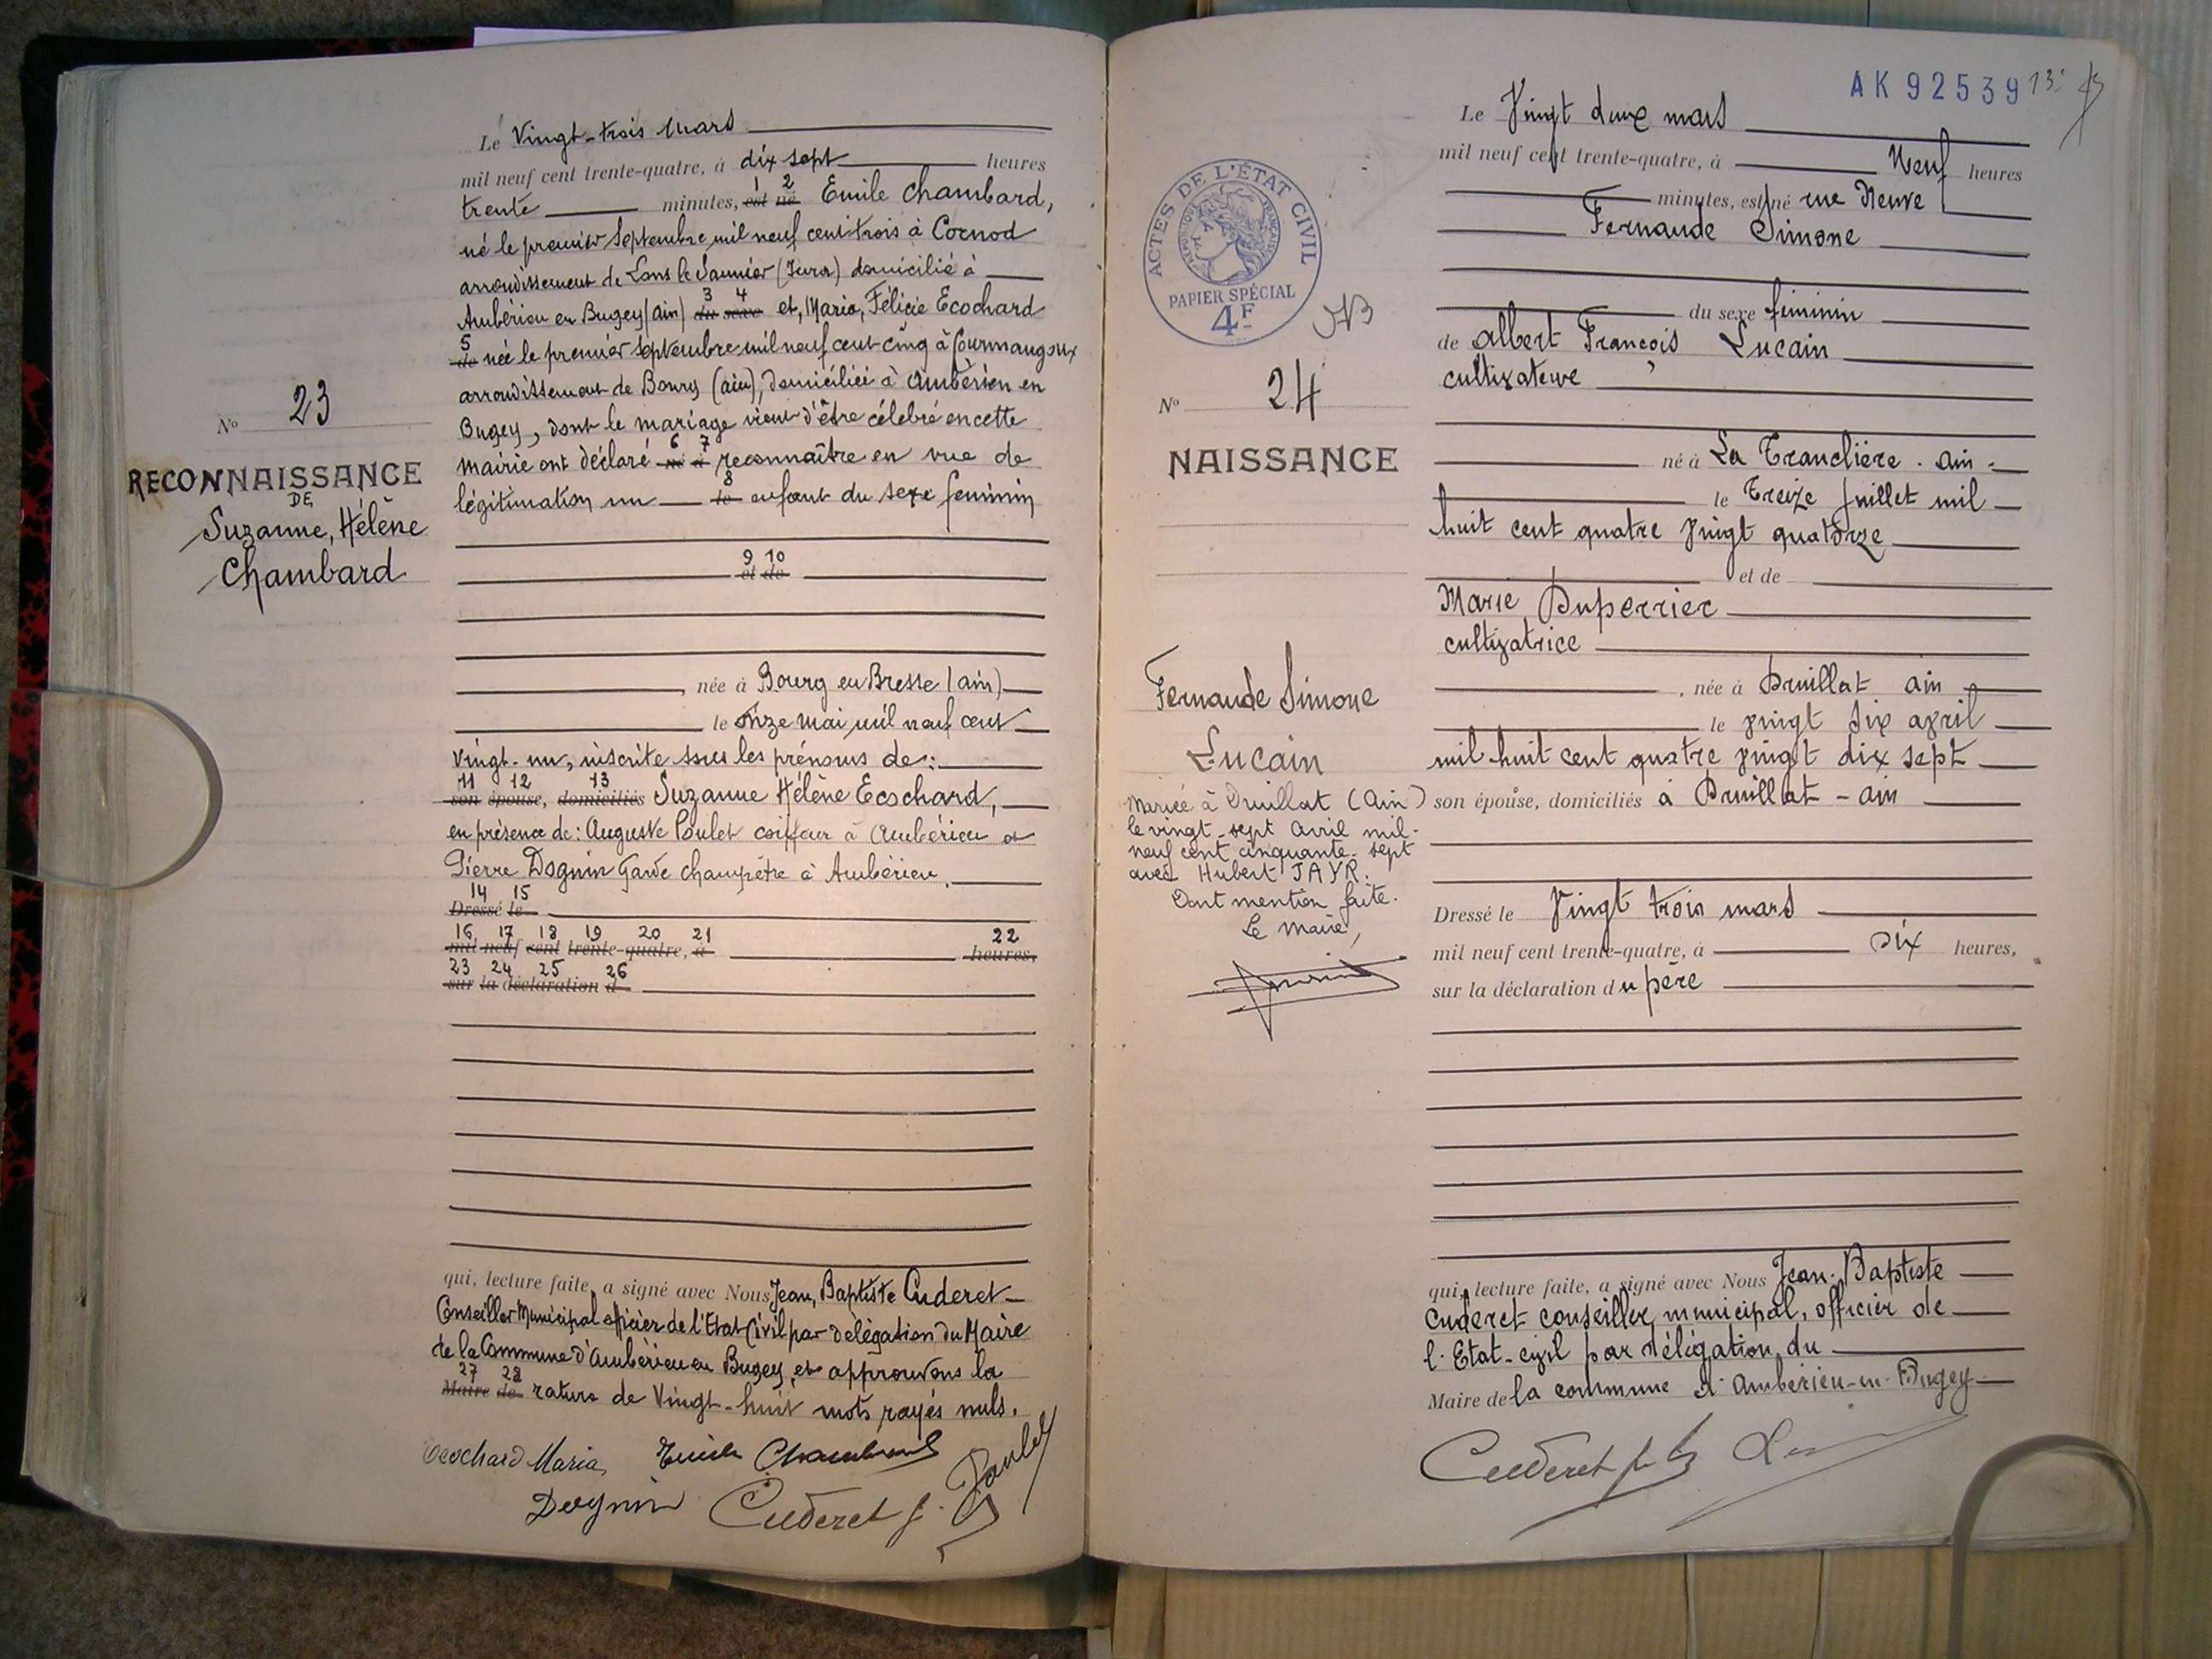 Le Vingt-trois Mars
mil neuf cent trente-quatre, à dix sept heures
1 2
trente minutes, est né Emile Chambard,
né le premier Septembre mil neuf cent trois à Cornod
arrondissement de Lons le Saunier (Jura) domicilié à
3 4
Ambérieu en Bugey (ain) du sexe et, Maria, Félicie Ecochard
5
de née le premier septembre mil neuf cent cinq à Courmangoux
arrondissement de Bourg (ain), domiciliée à Ambérieu en
Bugey, dont le mariage vient d'être célébré en cette
6 7
mairie ont déclaré né à reconnaître en vue de
8
légitimation un le enfant du sexe feminin
9 10
et de
née à Bourg en Bresse (ain)
le onze mai mil neuf cent
vingt-un, inscrite sous les prénoms de :
11 12 13
son épouse, domiciliés Suzanne Hélène Ecochard,
en présence de : Auguste Poulet coiffeur à Ambérieu et
Pierre Dognin Garde champêtre à Ambérieu.
14 15
Dressé le
16 17 18 19 20 21 22
mil neuf cent trente-quatre, à heures,
23 24 25 26
sur la déclaration d
qui, lecture faite, a signé avec Nous Jean, Baptiste Cuderet
Conseiller Municipal officier de l'Etat Civil par délégation du Maire
de la Commune d'Ambérieu en Bugey, et approuvons la
27 28
Maire de rature de Vingt-huit mots rayés nuls.
Ecochard Maria Emile Chambard Poulet
Dognin Cuderet J.
N° 23
RECONNAISSANCE
DE
Suzanne, Hélène
Chambard
AK 92539
Le Vingt deux mars
mil neuf cent trente-quatre, à Neuf heures
minutes, est né rue Neuve
Fernande Simone
du sexe féminin
de Albert François Lucain
cultivateur
né à La Tranclière . ain .
le Treize Juillet mil
huit cent quatre vingt quatorze
et de
Marie Duperrier
cultivatrice
, née à Druillat ain
le vingt six avril
mil huit cent quatre vingt dix sept
son épouse, domiciliés à Druillat - ain
Dressé le Vingt trois mars
mil neuf cent trente-quatre, à Dix heures,
sur la déclaration du père
qui, lecture faite, a signé avec Nous Jean-Baptiste
Cuderet conseiller municipal, officier de
l'Etat-civil par délégation du
Maire de la commune d'Ambérieu-en-Bugey
Cuderet
ACTES DE L'ÉTAT CIVIL
PAPIER SPÉCIAL
4F
N° 24
NAISSANCE
Fernande Simone
Lucain
Mariée à Druillat (Ain)
le vingt-sept Avril mil-
neuf cent cinquante-sept
avec Hubert JAYR.
Dont mention faite.
Le Maire,